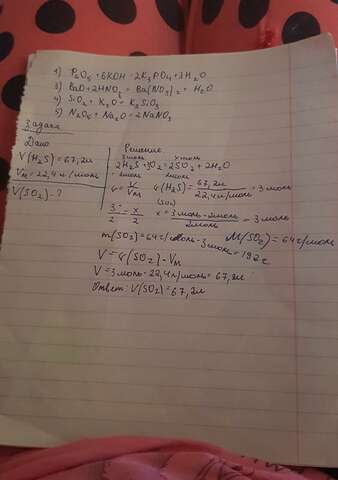 1) P₂O₅ + 6KOH = 2K₃PO₄ + 3H₂O
3) BaO + 2HNO₃ = Ba(NO₃)₂ + H₂O
4) SiO₂ + K₂O = K₂SiO₃
5) N₂O₅ + Na₂O = 2NaNO₃
Задача
Дано
V(H₂S) = 67,2л
Vм = 22,4 л/моль
V(SO₂) - ?
Решение
3моль х моль
2H₂S + 3O₂ = 2SO₂ + 2H₂O
2моль 2моль
ν = V/Vм ν(H₂S) = 67,2л / 22,4 л/моль = 3 моль
(SO₂)
3/2 = x/2 x = 3 моль · 2моль / 2моль = 3 моль
m(SO₂) = 64 г/моль · 3моль = 192г M(SO₂) = 64 г/моль
V = ν(SO₂) · Vм
V = 3 моль · 22,4 л/моль = 67,2л
Ответ: V(SO₂) = 67,2л